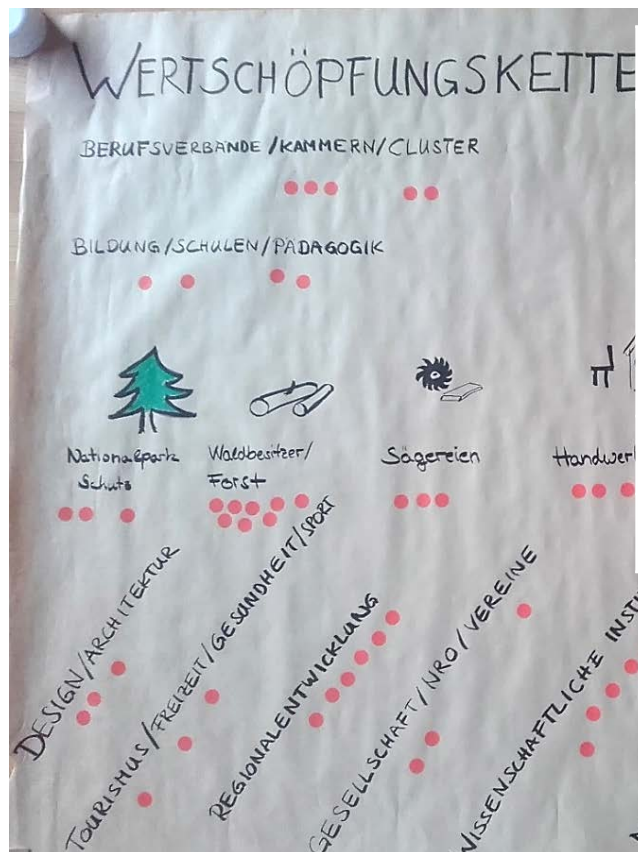 WERTSCHÖPFUNGSKETTE
BERUFSVERBANDE/KAMMERN/CLUSTER
BILDUNG/SCHULEN/PADAGOGIK
Nationalpark
Schutz
Waldbesitzer/
Forst
Sägereien
DESIGN/ARCHITEKTUR
TOURISMUS/FREIZEIT/GESUNDHEIT/SPORT
REGIONALENTWICKLUNG
GESELLSCHAFT/NRO/VEREINE
WISSENSCHAFTLICHE